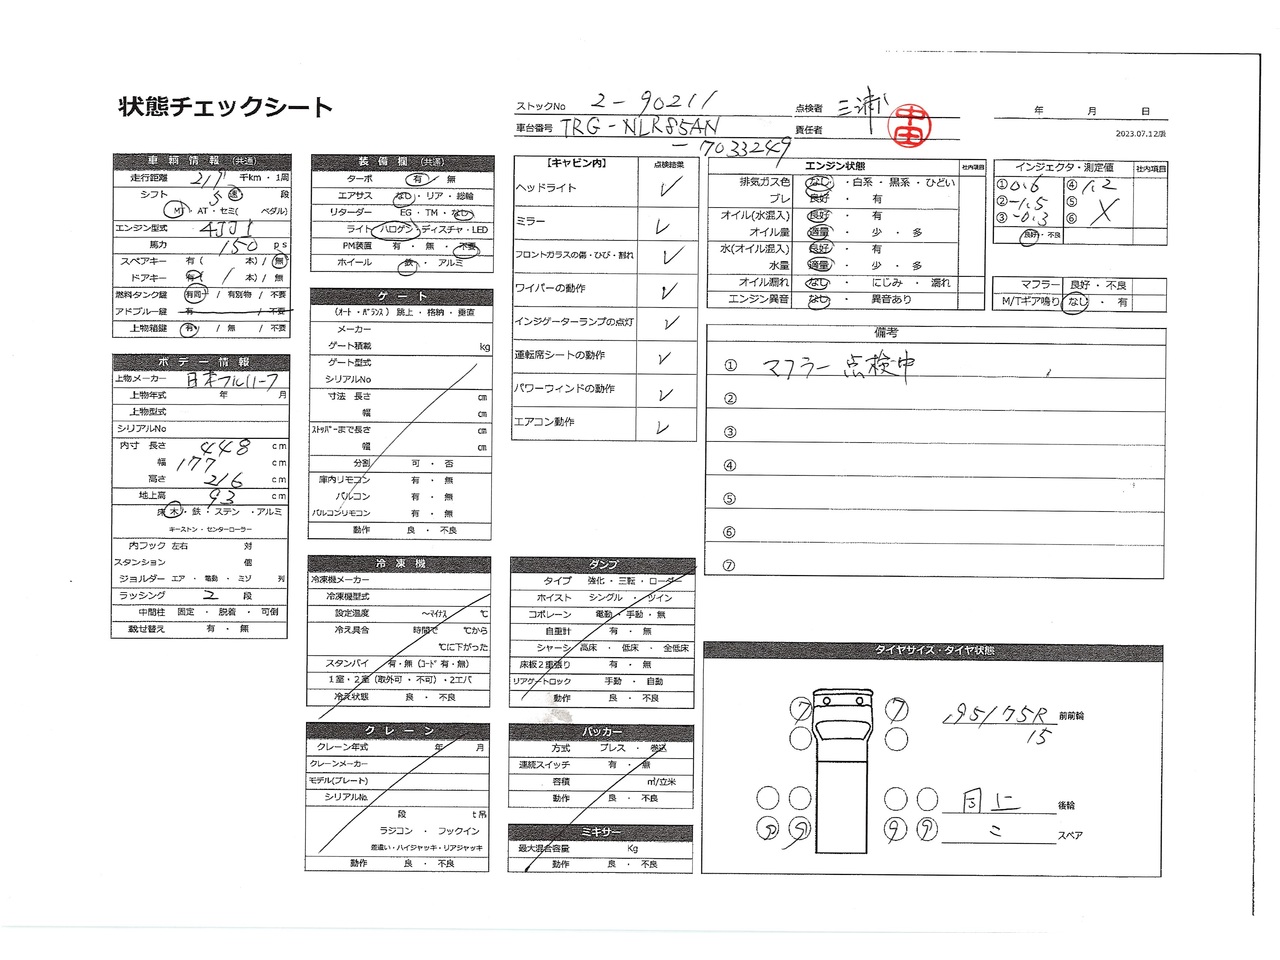 状態チェックシート
ストックNo 2-90211
車台番号 TRG-NLR85AN
-7033249
点検者 三浦
責任者
年 月 日
2023.07.12版
車輌情報 (共通)
走行距離 千km・1周
シフト 5 速 段
MT・AT・セミ( ペダル)
エンジン型式 4JJ1
馬力 150 ps
スペアキー 有( 本)/ 無
ドアキー 有( 1 本)/ 無
燃料タンク鍵 有同一 / 有別物 / 不要
アドブルー鍵 有 / 不要
上物箱鍵 有 / 無 / 不要
ボデー情報
上物メーカー 日本フルハーフ
上物年式 年 月
上物型式
シリアルNo
内寸 長さ 448 cm
幅 177 cm
高さ 216 cm
地上高 93 cm
床 木・鉄・ステン・アルミ
キーストン・センターローラー
内フック 左右 対
スタンション 個
ジョルダー エア・電動・ミゾ 列
ラッシング 2 段
中間柱 固定・脱着・可倒
載せ替え 有・無
装備欄 (共通)
ターボ 有 / 無
エアサス なし・リア・総輪
リターダー EG・TM・なし
ライト ハロゲン・ディスチャ・LED
PM装置 有・無・不要
ホイール 鉄・アルミ
ゲート
(オート・バランス) 跳上・格納・垂直
メーカー
ゲート積載 kg
ゲート型式
シリアルNo
寸法 長さ cm
幅 cm
ストッパーまで長さ cm
幅 cm
分割 可・否
庫内リモコン 有・無
バルコン 有・無
バルコンリモコン 有・無
動作 良・不良
冷凍機
冷凍機メーカー
冷凍機型式
設定温度 ～マイナス ℃
冷え具合 時間で ℃から
℃に下がった
スタンバイ 有・無 (コード 有・無)
1室・2室 (取外可・不可)・2エバ
冷え状態 良・不良
クレーン
クレーン年式 年 月
クレーンメーカー
モデル(プレート)
シリアルNo.
段 t吊
ラジコン・フックイン
差違い・ハイジャッキ・リアジャッキ
動作 良・不良
【キャビン内】 点検結果
ヘッドライト ✓
ミラー ✓
フロントガラスの傷・ひび・割れ ✓
ワイパーの動作 ✓
インジゲーターランプの点灯 ✓
運転席シートの動作 ✓
パワーウィンドの動作 ✓
エアコン動作 ✓
ダンプ
タイプ 強化・三転・ローダー
ホイスト シングル・ツイン
コボレーン 電動・手動・無
自重計 有・無
シャーシ 高床・低床・全低床
床板2重張り 有・無
リアゲートロック 手動・自動
動作 良・不良
パッカー
方式 プレス・巻込
連続スイッチ 有・無
容積 ㎥/立米
動作 良・不良
ミキサー
最大混合容量 Kg
動作 良・不良
エンジン状態 社内項目
排気ガス色 なし・白系・黒系・ひどい
ブレ 良好・有
オイル(水混入) 良好・有
オイル量 適量・少・多
水(オイル混入) 良好・有
水量 適量・少・多
オイル漏れ なし・にじみ・漏れ
エンジン異音 なし・異音あり
インジェクタ・測定値 社内項目
①0.6 ④1.2
②-1.5 ⑤
③-0.3 ⑥ X
良好・不良
マフラー 良好・不良
M/Tギア鳴り なし・有
備考
① マフラー点検中
②
③
④
⑤
⑥
⑦
タイヤサイズ・タイヤ状態
7 7
195/75R 前前輪
15
同じ 後輪
9 9 9 9
〃 スペア